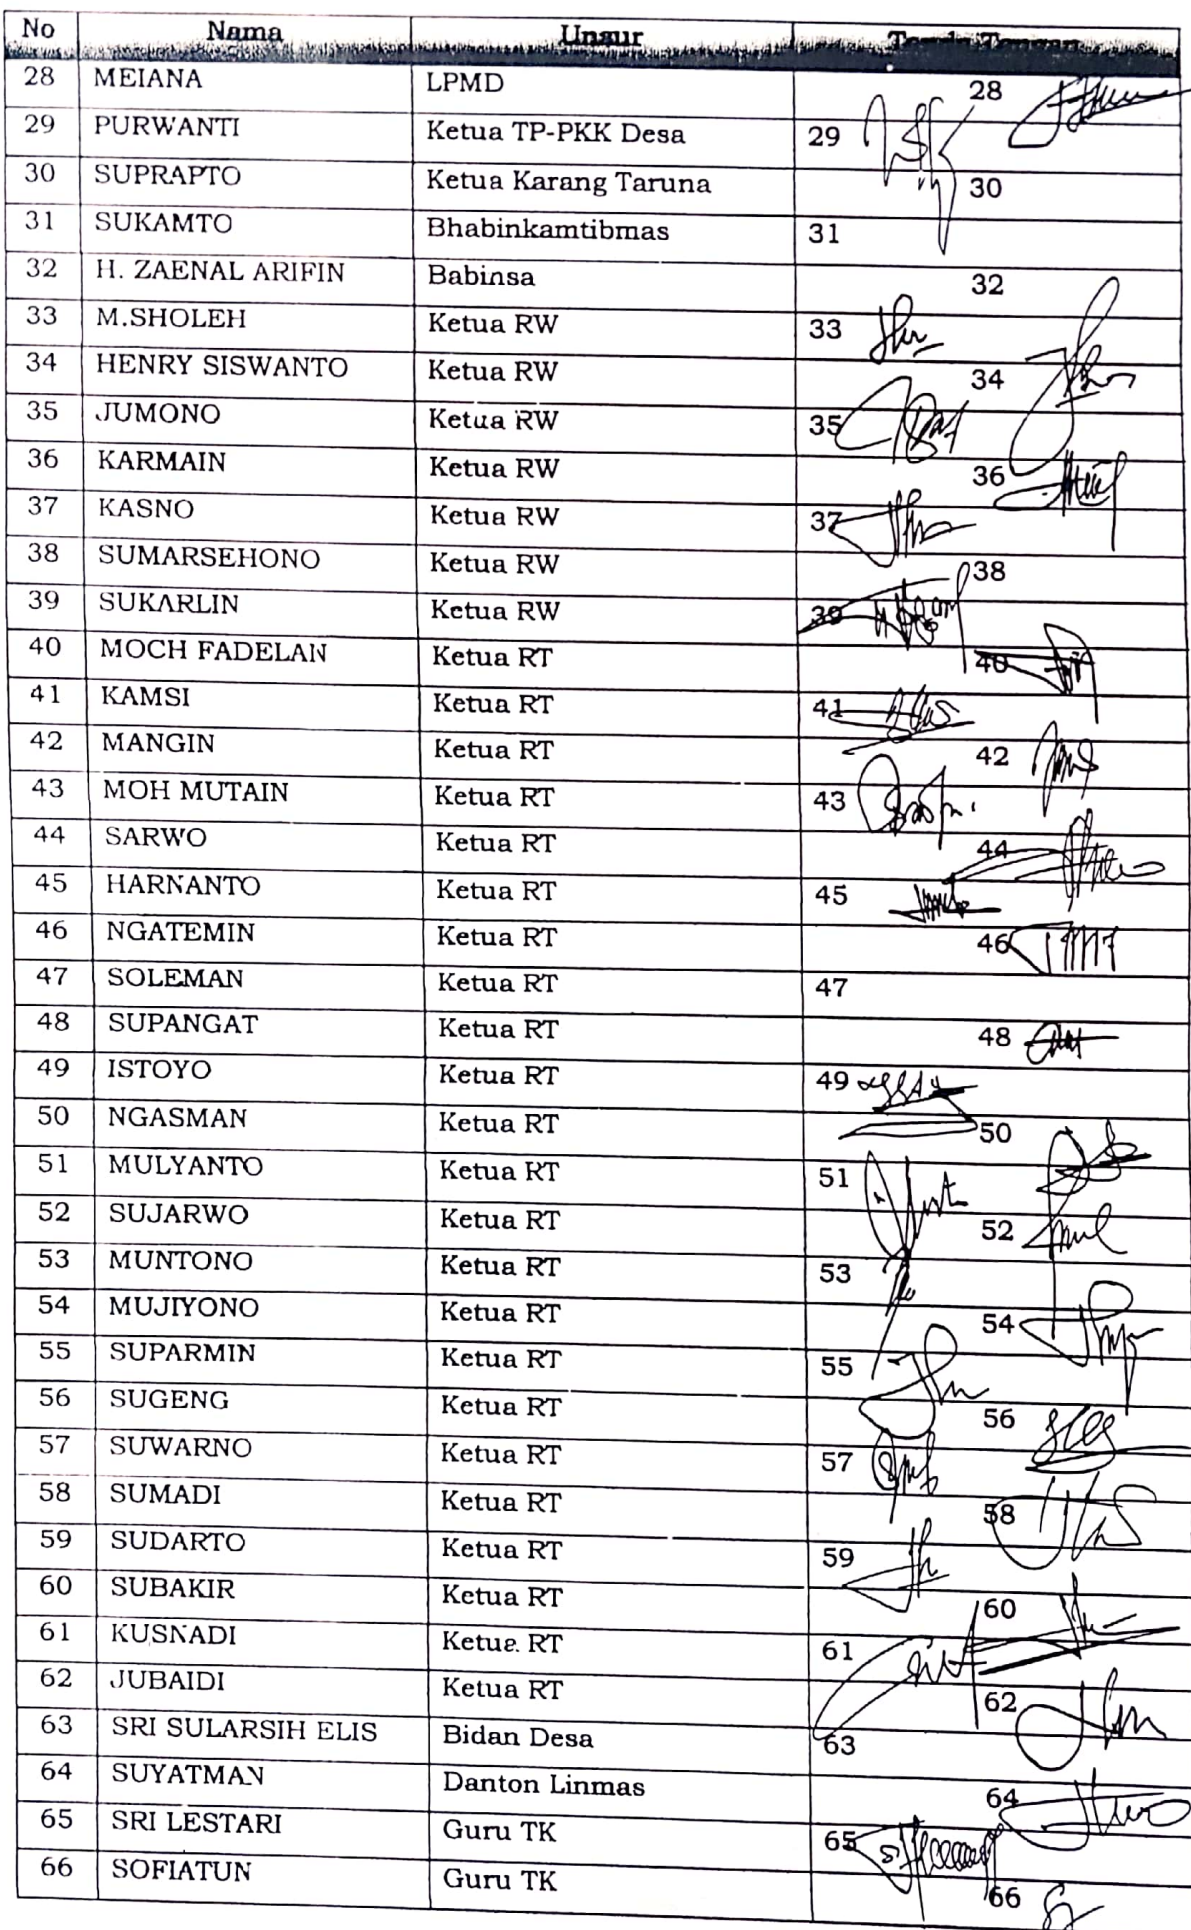 No Nama Unsur Tanda Tangan
28 MEIANA LPMD 28
29 PURWANTI Ketua TP-PKK Desa 29
30 SUPRAPTO Ketua Karang Taruna 30
31 SUKAMTO Bhabinkamtibmas 31
32 H. ZAENAL ARIFIN Babinsa 32
33 M.SHOLEH Ketua RW 33
34 HENRY SISWANTO Ketua RW 34
35 JUMONO Ketua RW 35
36 KARMAIN Ketua RW 36
37 KASNO Ketua RW 37
38 SUMARSEHONO Ketua RW 38
39 SUKARLIN Ketua RW 39
40 MOCH FADELAN Ketua RT 40
41 KAMSI Ketua RT 41
42 MANGIN Ketua RT 42
43 MOH MUTAIN Ketua RT 43
44 SARWO Ketua RT 44
45 HARNANTO Ketua RT 45
46 NGATEMIN Ketua RT 46
47 SOLEMAN Ketua RT 47
48 SUPANGAT Ketua RT 48
49 ISTOYO Ketua RT 49
50 NGASMAN Ketua RT 50
51 MULYANTO Ketua RT 51
52 SUJARWO Ketua RT 52
53 MUNTONO Ketua RT 53
54 MUJIYONO Ketua RT 54
55 SUPARMIN Ketua RT 55
56 SUGENG Ketua RT 56
57 SUWARNO Ketua RT 57
58 SUMADI Ketua RT 58
59 SUDARTO Ketua RT 59
60 SUBAKIR Ketua RT 60
61 KUSNADI Ketua RT 61
62 JUBAIDI Ketua RT 62
63 SRI SULARSIH ELIS Bidan Desa 63
64 SUYATMAN Danton Linmas 64
65 SRI LESTARI Guru TK 65
66 SOFIATUN Guru TK 66